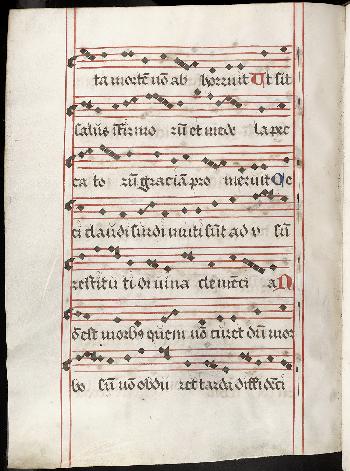 ta mortē nō ab horruit Ut sit
salus īfirmo rū et mede la pec
ca to rū graciā pro meruit Ce
ci claudi surdi muti sūt ad v sū
restitu ti divina clemēci a N
ō est morbꝰ quem nō curet dū mor
bo sū nō obdu ret tarda diffidēci